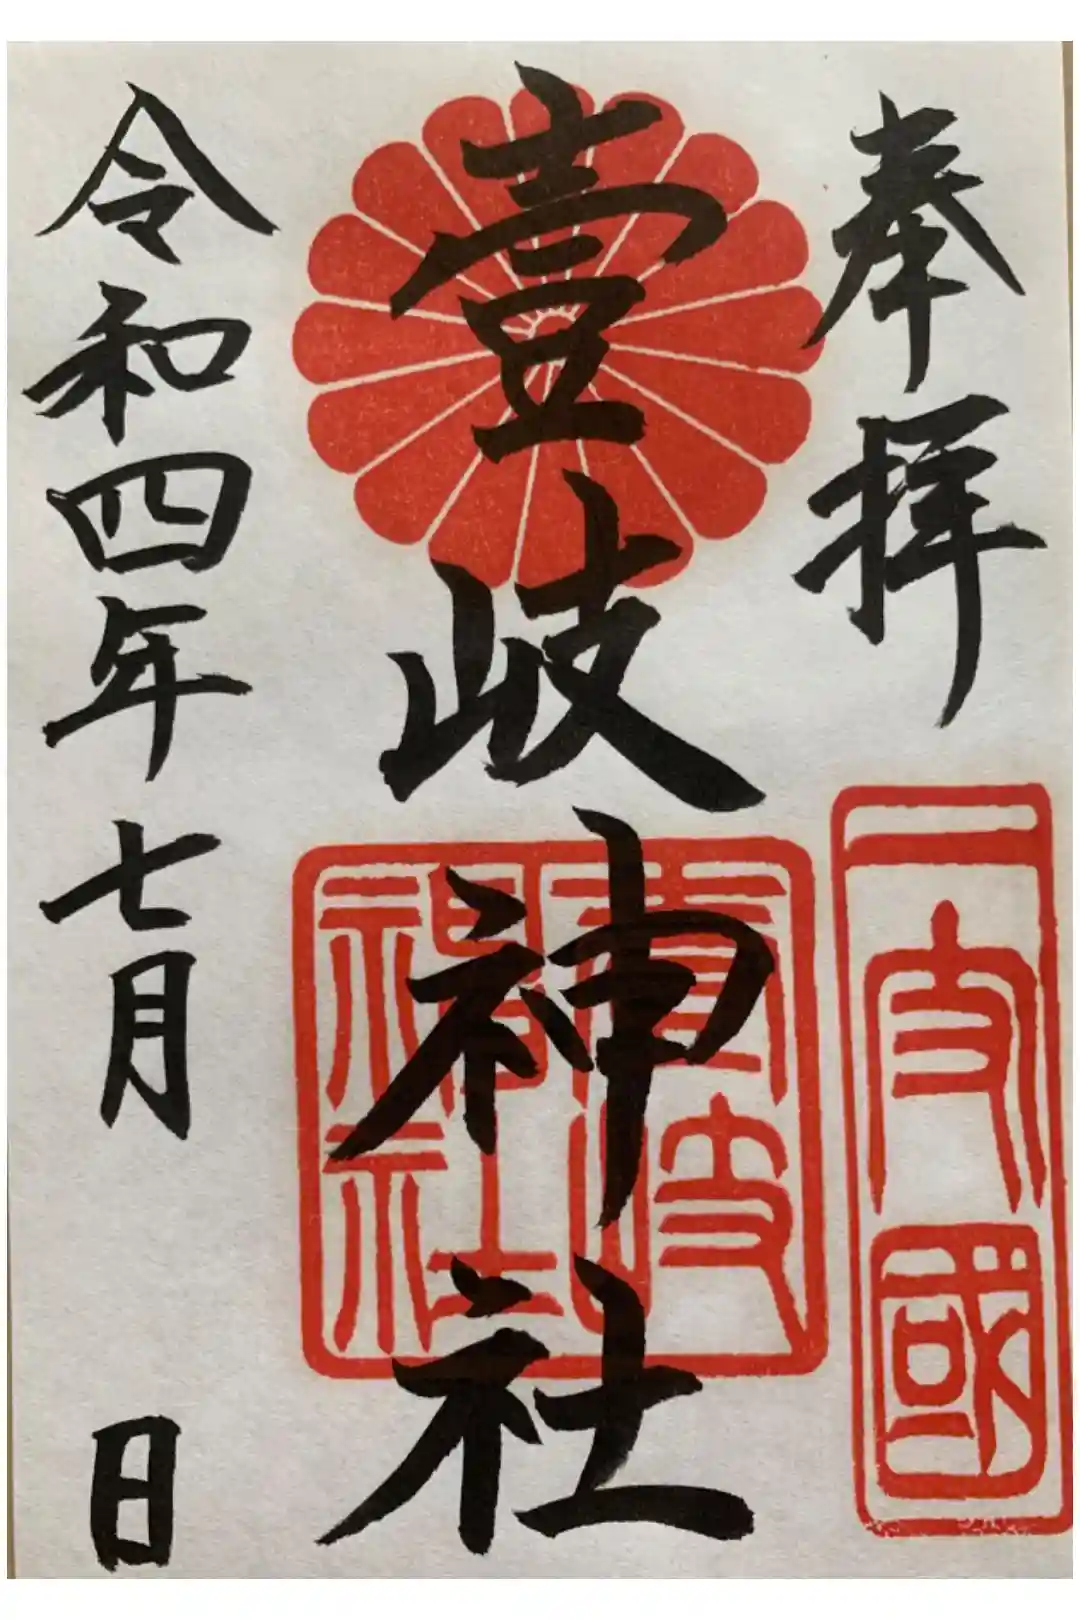 奉拝
一支國
壹岐神社
壹岐神社
令和四年七月　日